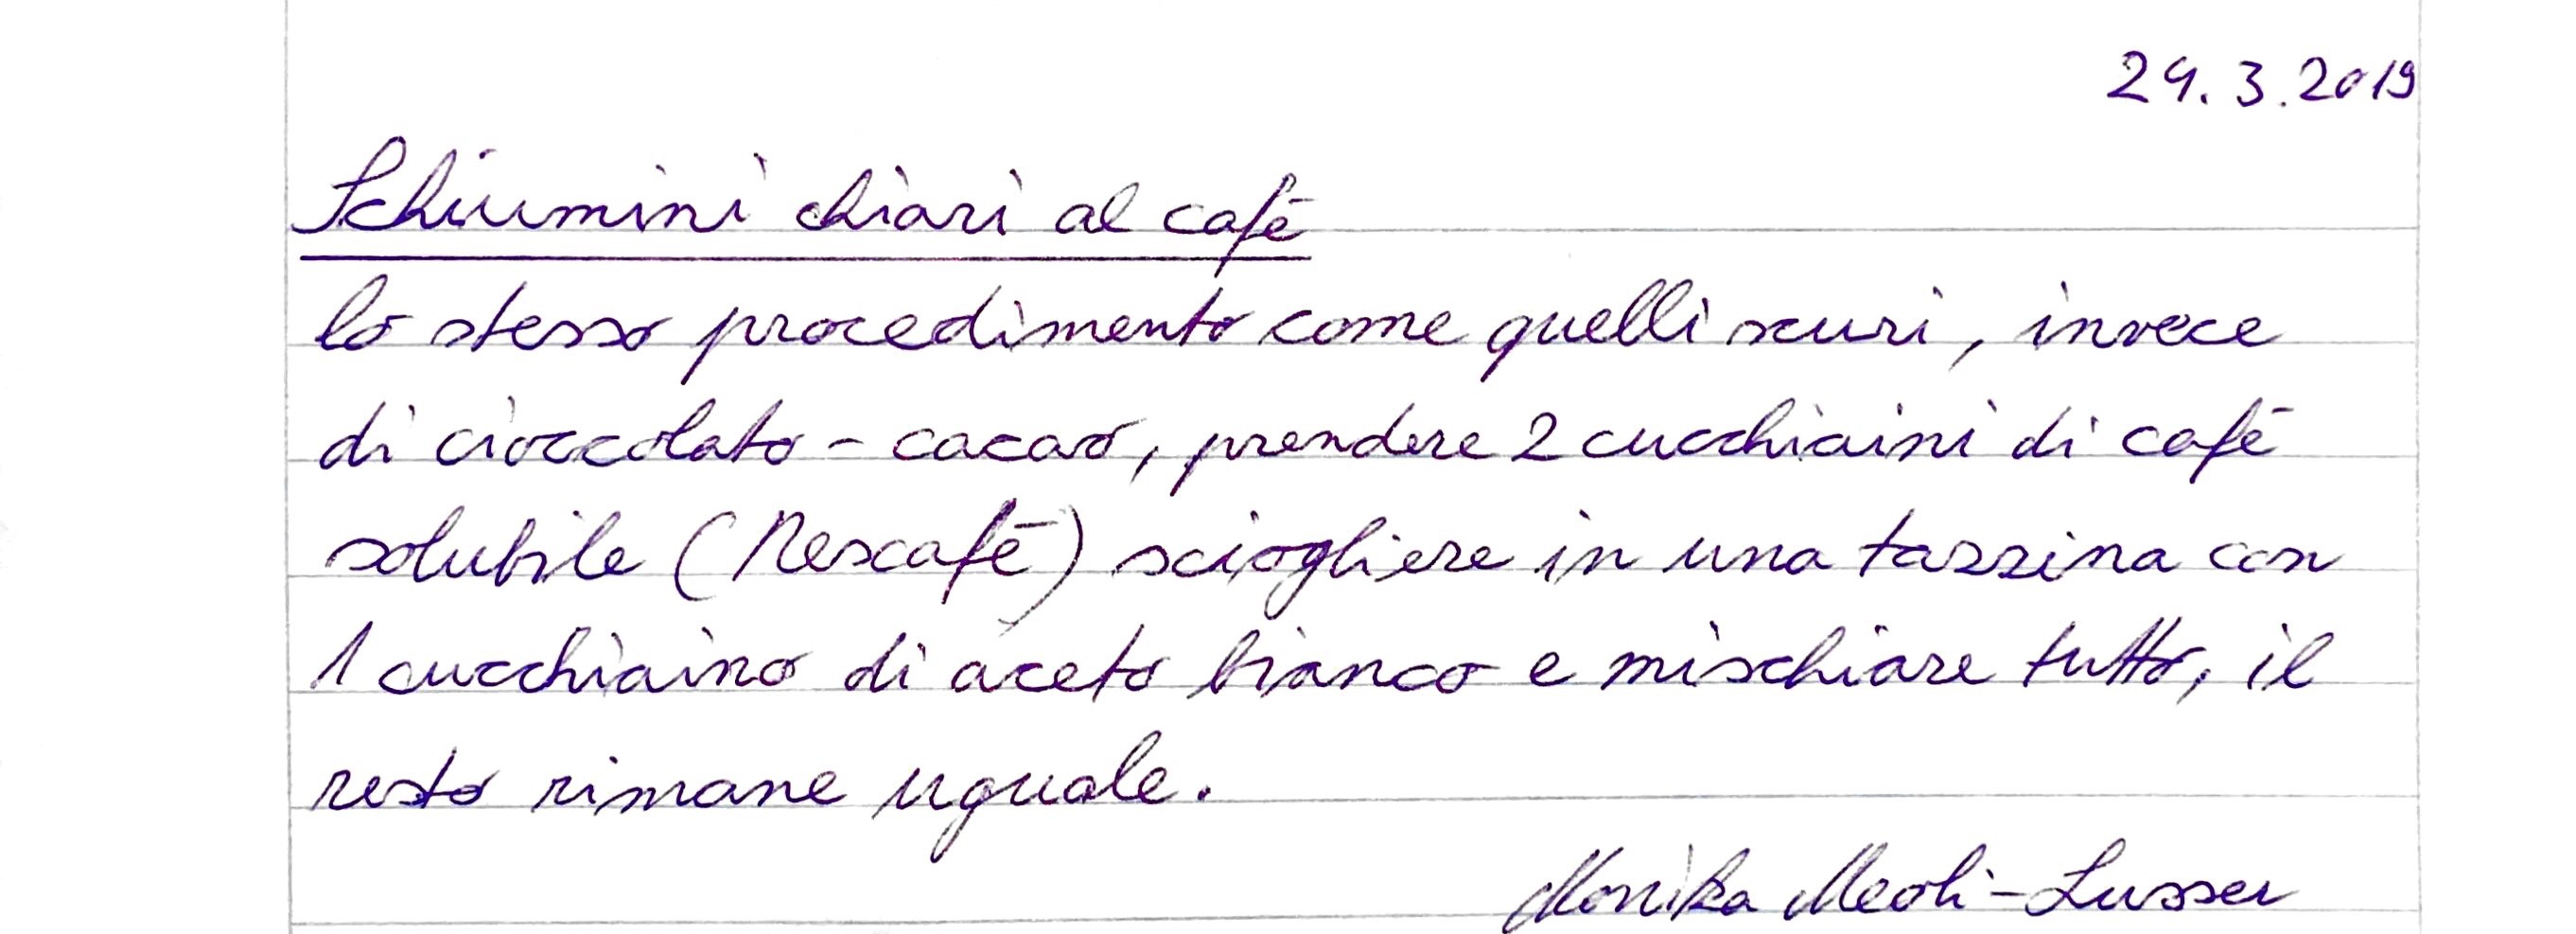 29.3.2019
Schiumini chiari al cafē
lo stesso procedimento come quelli scuri, invece
di cioccolato - cacao, prendere 2 cucchiaini di cafē
solubile (Nescafē) sciogliere in una tazzina con
1 cucchiaino di aceto bianco e mischiare tutto, il
resto rimane uguale.
Monika Meoli-Lusser